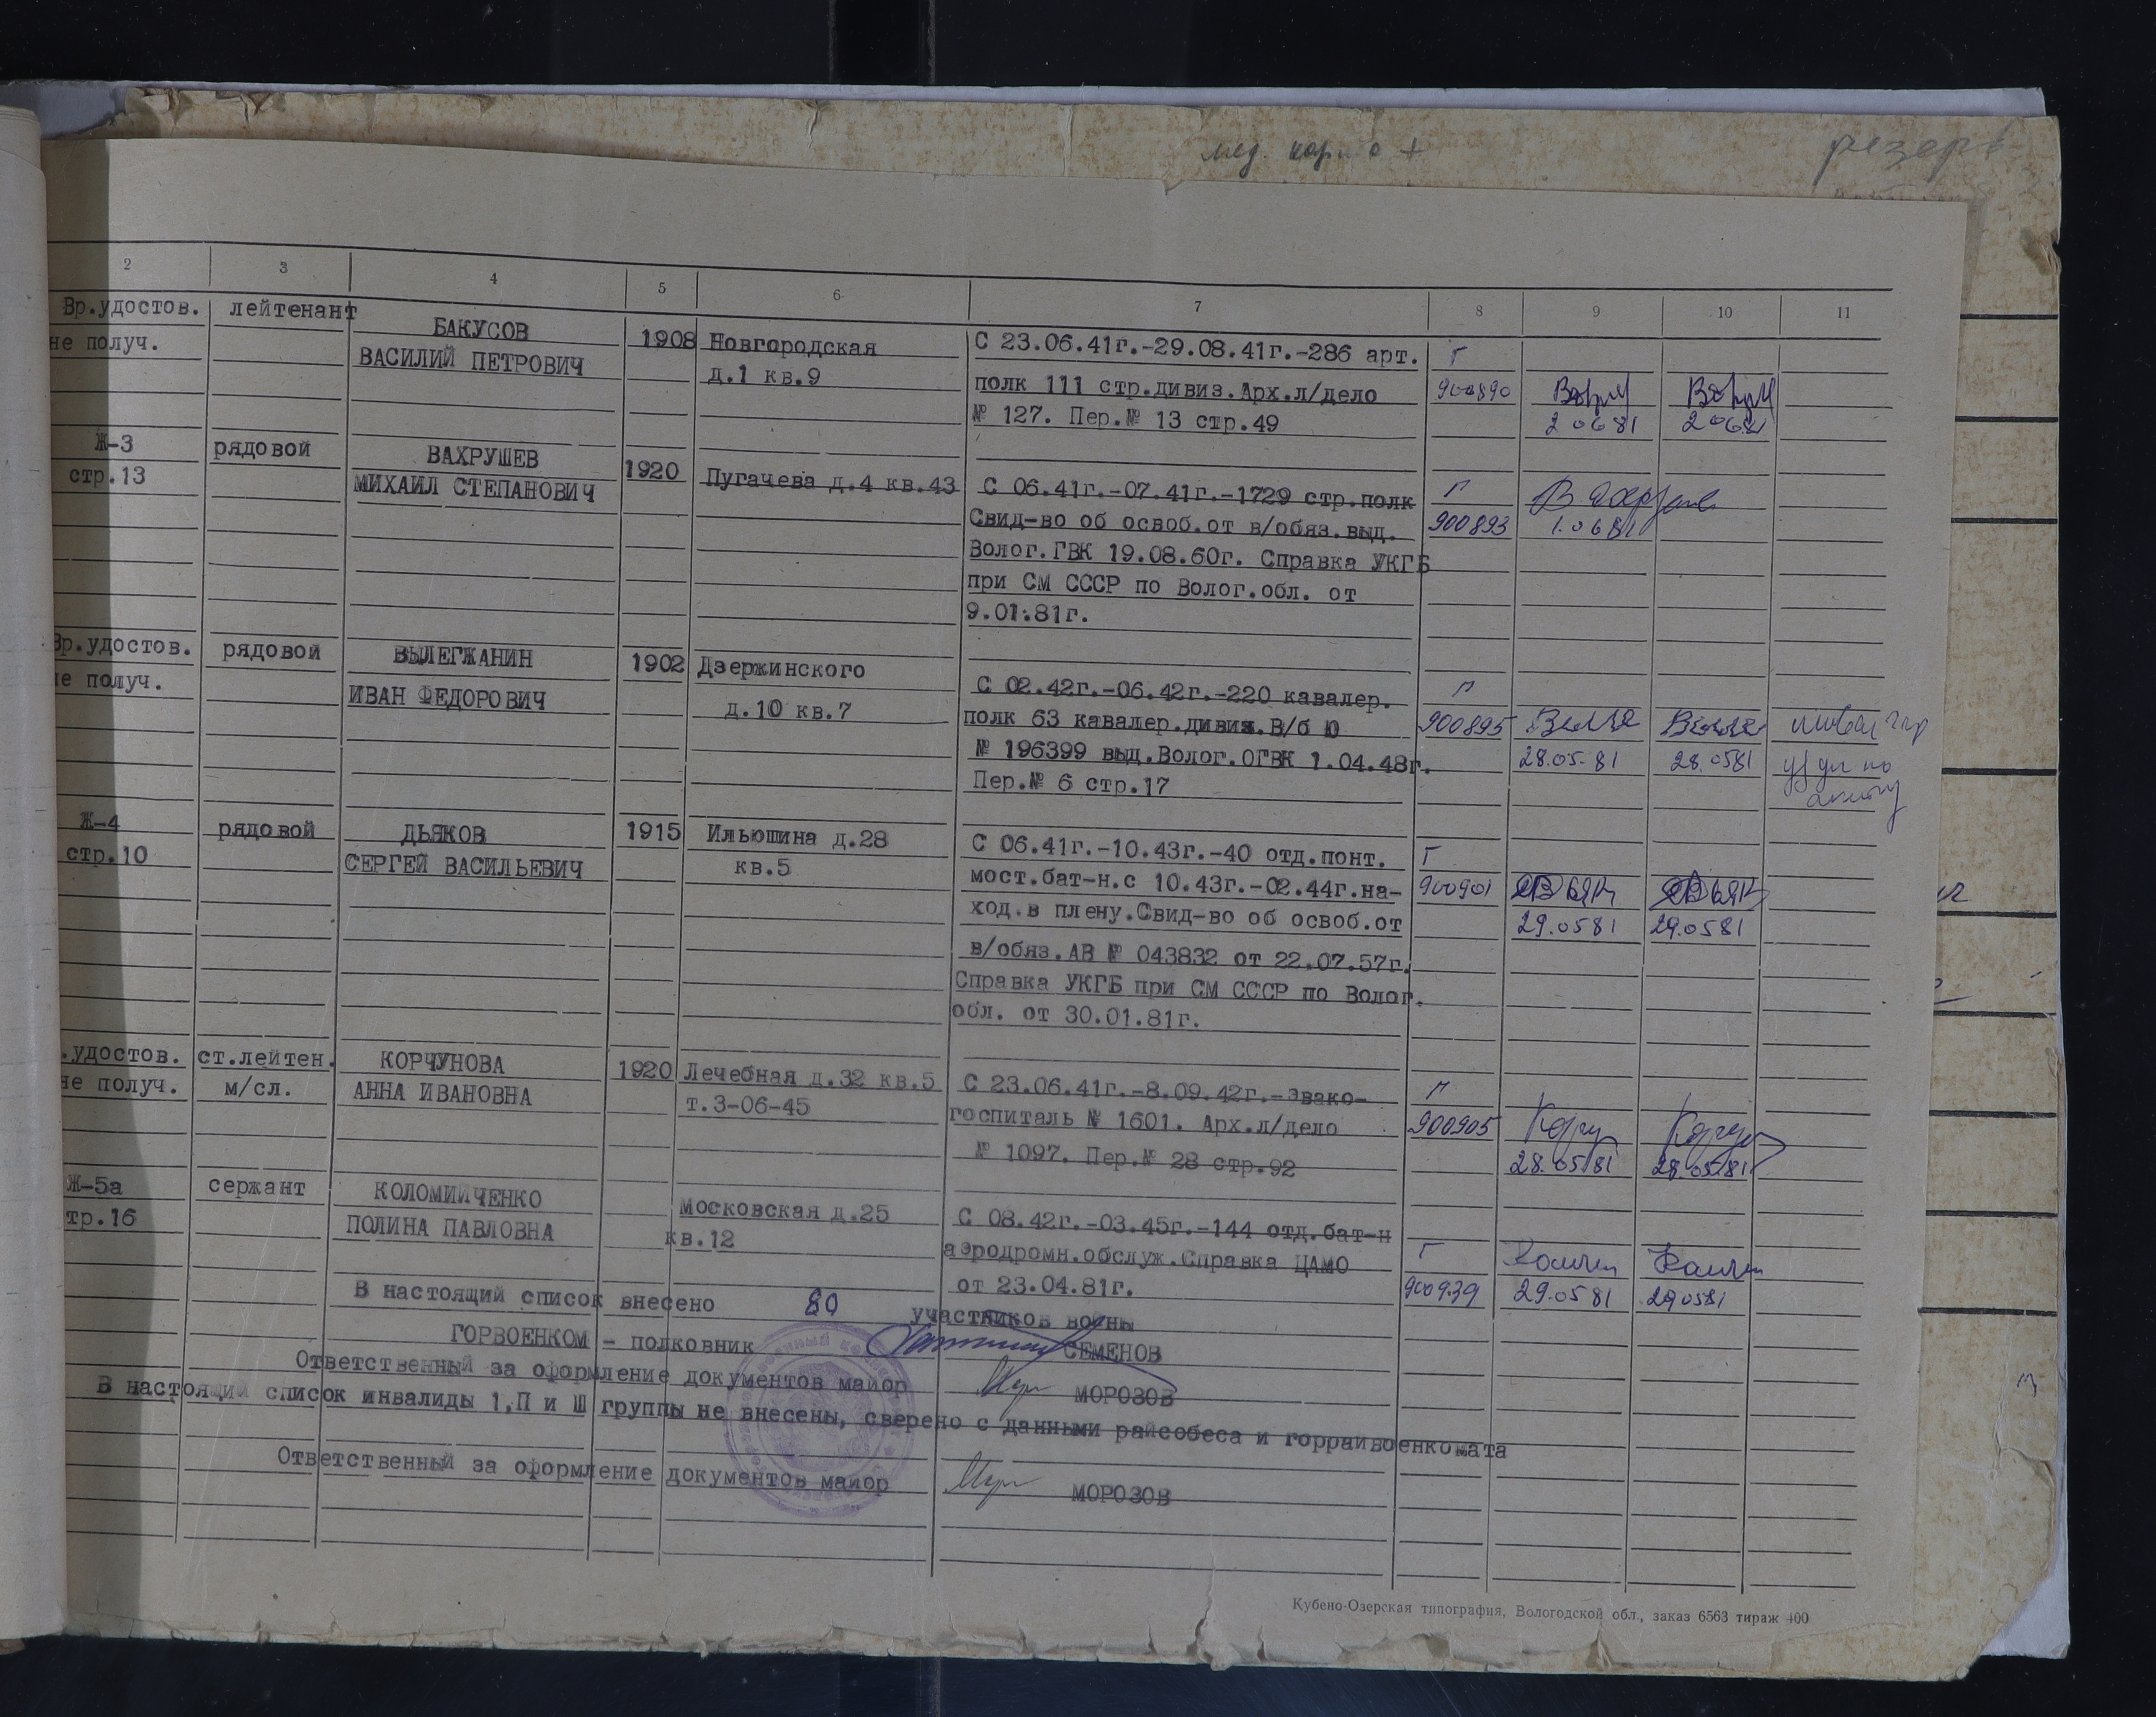 мед. карта +
резерв
2 3 4 5 6 7 8 9 10 11
Вр.удостов. лейтенант БАКУСОВ 1908 Новгородская С 23.06.41г.-29.08.41г.-286 арт. Г
не получ. ВАСИЛИЙ ПЕТРОВИЧ д.1 кв.9 полк 111 стр.дивиз.Арх.л/дело 900890
№ 127. Пер.№ 13 стр.49 2 06 81 2 06 81
Ж-3 рядовой ВАХРУШЕВ 1920 Пугачева д.4 кв.43 С 06.41г.-07.41г.-1729 стр.полк Г
стр.13 МИХАИЛ СТЕПАНОВИЧ Свид-во об освоб.от в/обяз.выд. 900893 1.06 81
Волог.ГВК 19.08.60г. Справка УКГБ
при СМ СССР по Волог.обл. от
9.01.81г.
Вр.удостов. рядовой ВЫЛЕГЖАНИН 1902 Дзержинского С 02.42г.-06.42г.-220 кавалер. Г
не получ. ИВАН ФЕДОРОВИЧ д.10 кв.7 полк 63 кавалер.дивиз.В/б Ю 900895
№ 196399 выд.Волог.ОГВК 1.04.48г. 28.05.81 28.0581
Пер.№ 6 стр.17
Ж-4 рядовой ДЬЯКОВ 1915 Ильюшина д.28 С 06.41г.-10.43г.-40 отд.понт. Г
стр.10 СЕРГЕЙ ВАСИЛЬЕВИЧ кв.5 мост.бат-н.с 10.43г.-02.44г.на- 900901
ход.в плену.Свид-во об освоб.от 29.0581 29.0581
в/обяз.АВ № 043832 от 22.07.57г.
Справка УКГБ при СМ СССР по Волог.
обл. от 30.01.81г.
.удостов. ст.лейтен. КОРЧУНОВА 1920 Лечебная д.32 кв.5 С 23.06.41г.-8.09.42г.-эвако- Г
не получ. м/сл. АННА ИВАНОВНА т.3-06-45 госпиталь № 1601. Арх.л/дело 900905
№ 1097. Пер.№ 28 стр.92 28.0581 28.05.81
Ж-5а сержант КОЛОМИЙЧЕНКО Московская д.25 С 08.42г.-03.45г.-144 отд.бат-н Г
тр.16 ПОЛИНА ПАВЛОВНА кв.12 аэродромн.обслуж.Справка ЦАМО
от 23.04.81г. 900939 29.05 81 29 0581
В настоящий список внесено 80 участников войны
ГОРВОЕНКОМ - полковник СЕМЕНОВ
Ответственный за оформление документов майор МОРОЗОВ
В настоящий список инвалиды 1,П и Ш группы не внесены, сверено с данными райсобеса и горрайвоенкомата
Ответственный за оформление документов майор МОРОЗОВ
Кубено-Озерская типография, Вологодской обл., заказ 6563 тираж 400